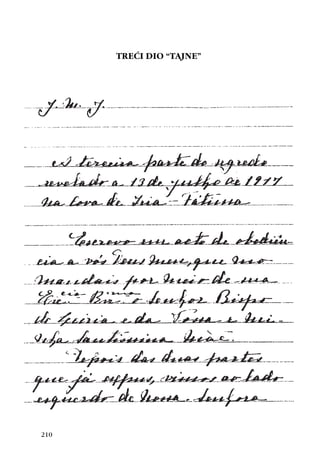 TREĆI DIO “TAJNE”
J. M. J.
A terceira parte do segredo
revelado a 13 de julho de 1917
na Cova de Iria - Fátima
Escrevo em acto de obediên
cia a vós Deus meu, que mo
mandais por meio de sua
Ex.cia Rev.ma o Senhor Bispo
de Leiria e da Vossa e mi-
nha Santíssima Mãe.
Depois das duas partes
que já expus, vimos ao lado
esquerdo de Nossa Senhora
210